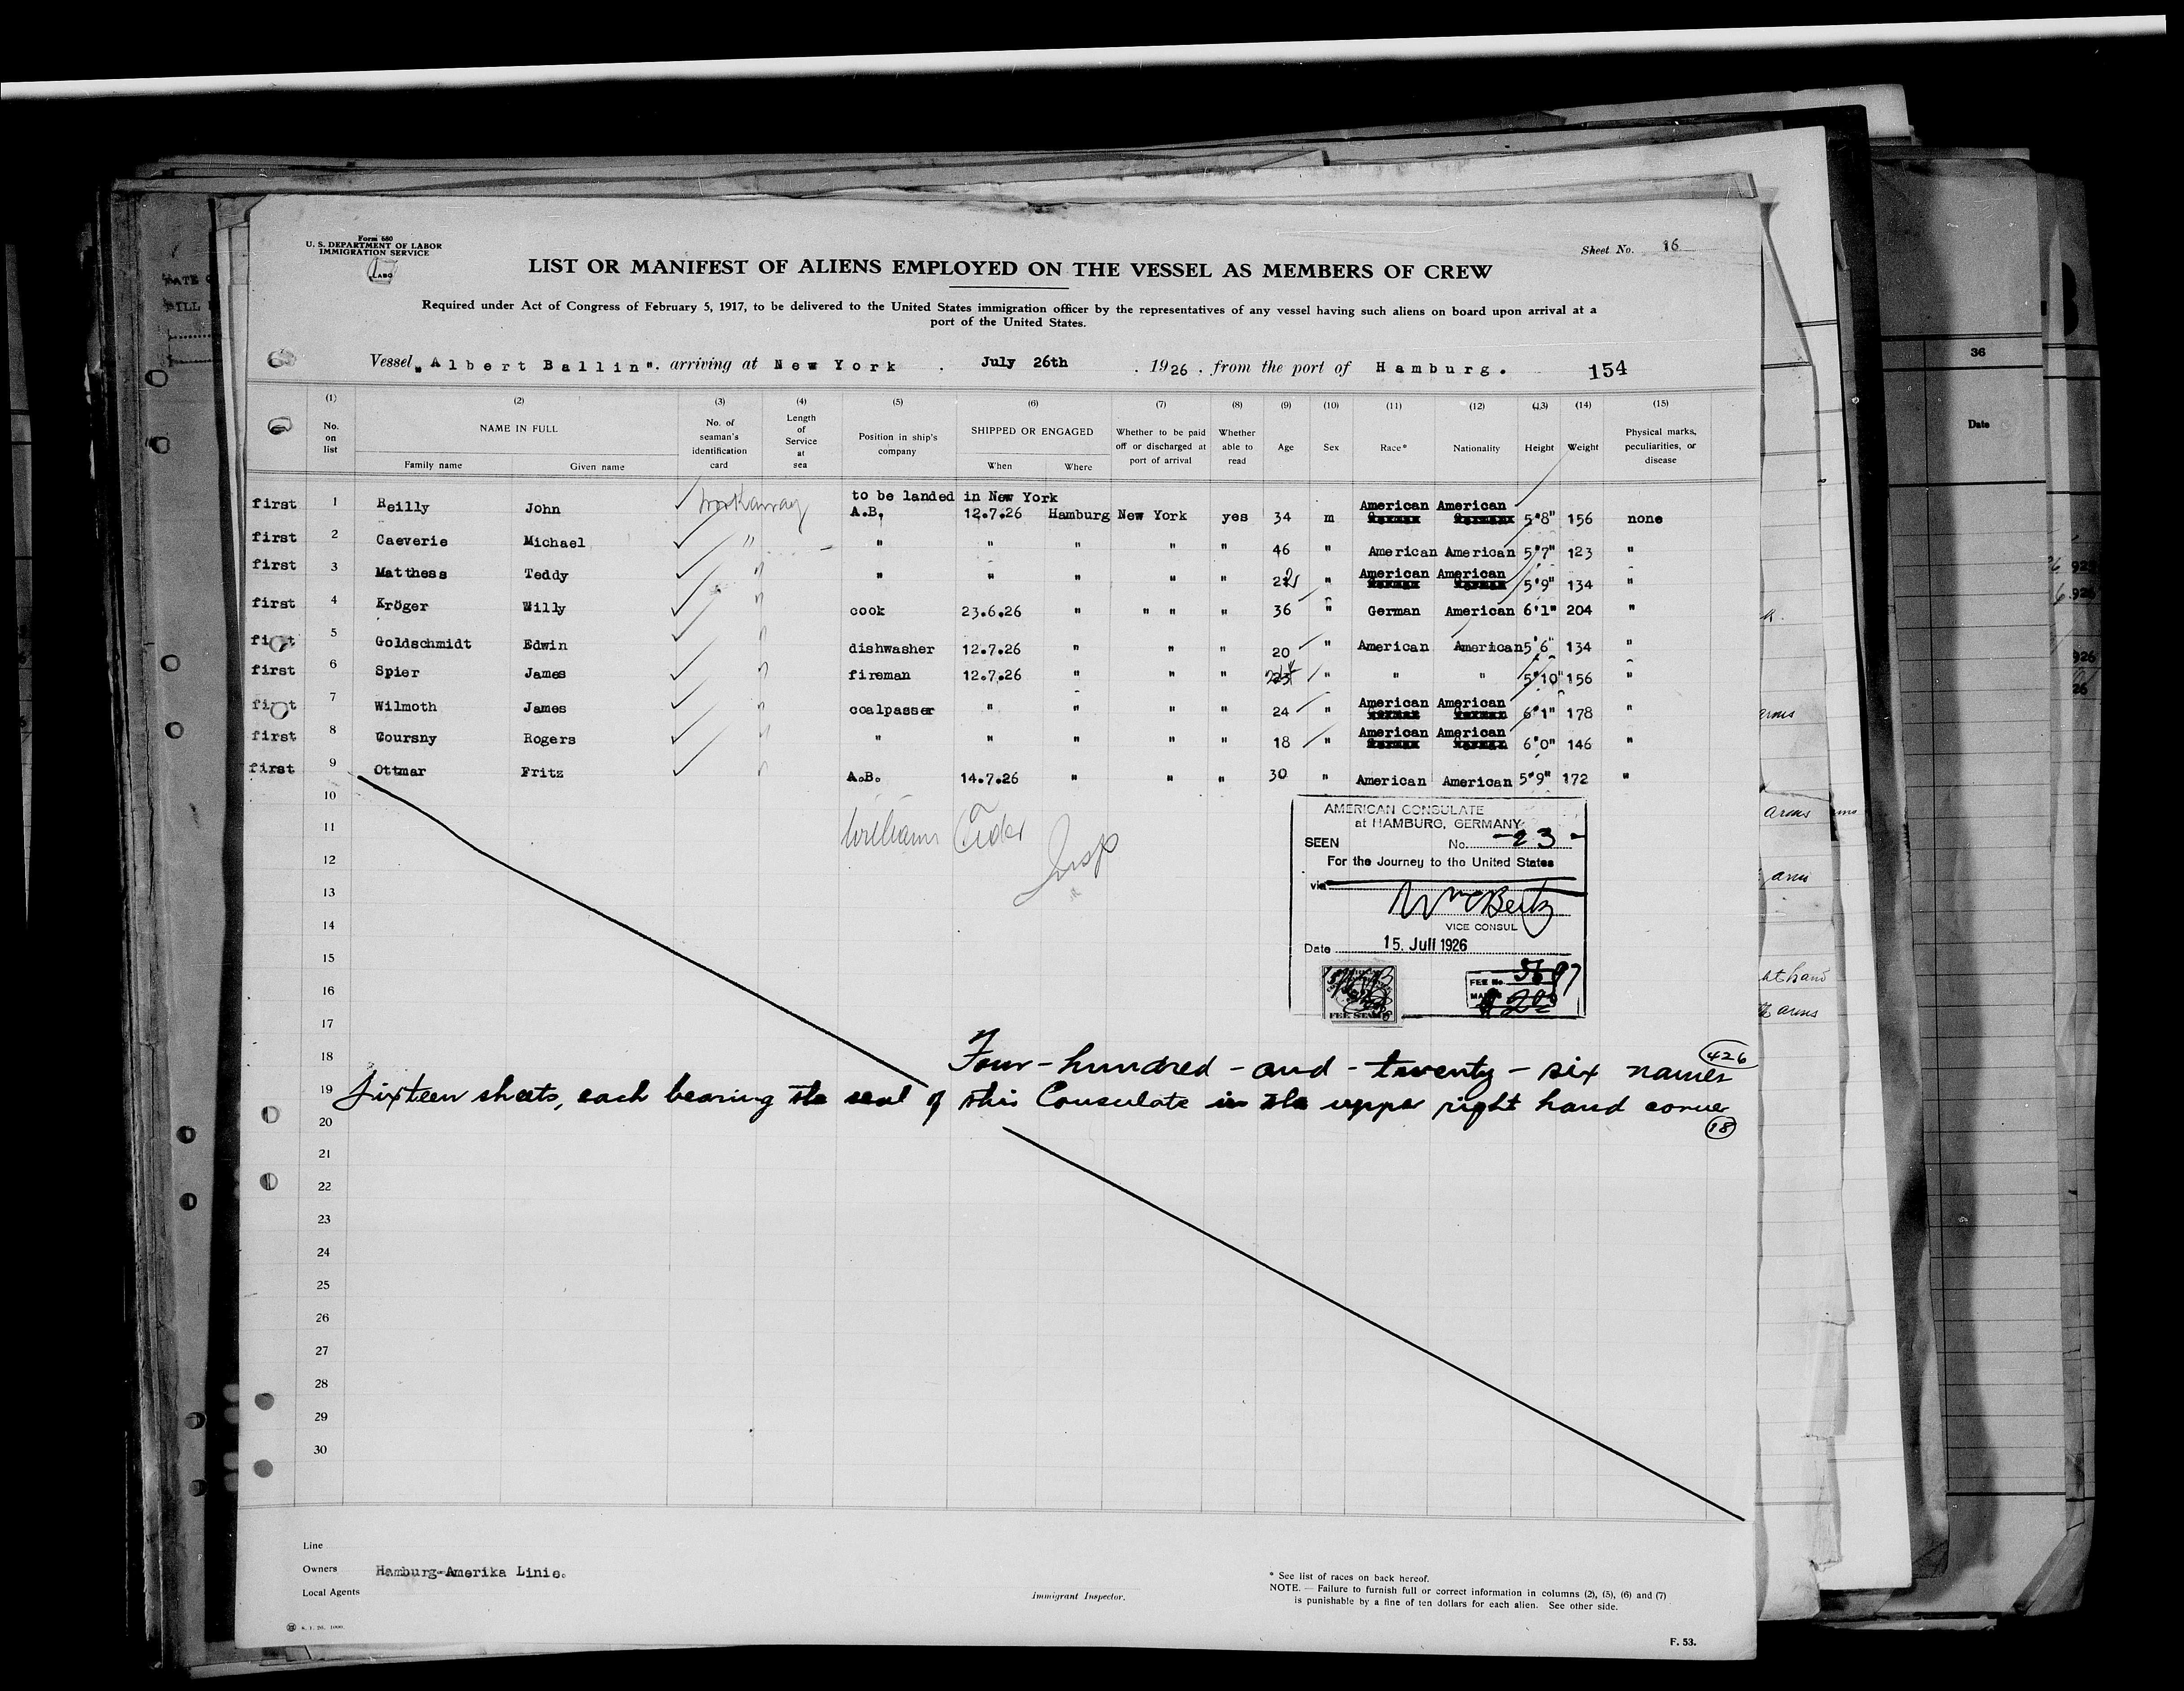 Form 680
U. S. DEPARTMENT OF LABOR
IMMIGRATION SERVICE
Sheet No. 16
LIST OR MANIFEST OF ALIENS EMPLOYED ON THE VESSEL AS MEMBERS OF CREW
Required under Act of Congress of February 5, 1917, to be delivered to the United States immigration officer by the representatives of any vessel having such aliens on board upon arrival at a
port of the United States.
Vessel „Albert Ballin". arriving at New York. July 26th, 1926, from the port of Hamburg. 154
(1) (2) (3) (4) (5) (6) (7) (8) (9) (10) (11) (12) (13) (14) (15)
No. on list
NAME IN FULL
Family name Given name
No. of seaman's identification card
Length of Service at sea
Position in ship's company
SHIPPED OR ENGAGED
When Where
Whether to be paid off or discharged at port of arrival
Whether able to read
Age
Sex
Race*
Nationality
Height
Weight
Physical marks, peculiarities, or disease
to be landed in New York
first 1 Reilly John Workaway A.B. 12.7.26 Hamburg New York yes 34 m American American 5'8" 156 none
first 2 Caeverie Michael " " " " " " 46 " American American 5'7" 123 "
first 3 Matthess Teddy " " " " " " " American American 5'9" 134 "
first 4 Kröger Willy " cook 23.6.26 " " " " 36 " German American 6'1" 204 "
first 5 Goldschmidt Edwin " dishwasher 12.7.26 " " " 20 " American American 5'6" 134 "
first 6 Spier James " fireman 12.7.26 " " " " " " 5'10" 156 "
first 7 Wilmoth James " coalpasser " " " " 24 " American American 6'1" 178 "
first 8 Coursny Rogers " " " " " " 18 " American American 6'0" 146 "
first 9 Ottmar Fritz " A.B. 14.7.26 " " " 30 " American American 5'9" 172 "
10
11
12
13
14
15
16
17
18
19
20
21
22
23
24
25
26
27
28
29
30
William
Insp
AMERICAN CONSULATE
at HAMBURG, GERMANY
SEEN No. -23-
For the Journey to the United States
via
VICE CONSUL
Date 15. Juli 1926
FEE STAMP
FEE No. 5687
Four-hundred-and-twenty-six names 426
Sixteen sheets, each bearing the seal of this Consulate in the upper right hand corner
18
Line
Owners Hamburg-Amerika Linie.
Local Agents
Immigrant Inspector.
* See list of races on back hereof.
NOTE. — Failure to furnish full or correct information in columns (2), (5), (6) and (7)
is punishable by a fine of ten dollars for each alien. See other side.
F. 53.
36
Date
arms
arms
arm
arms